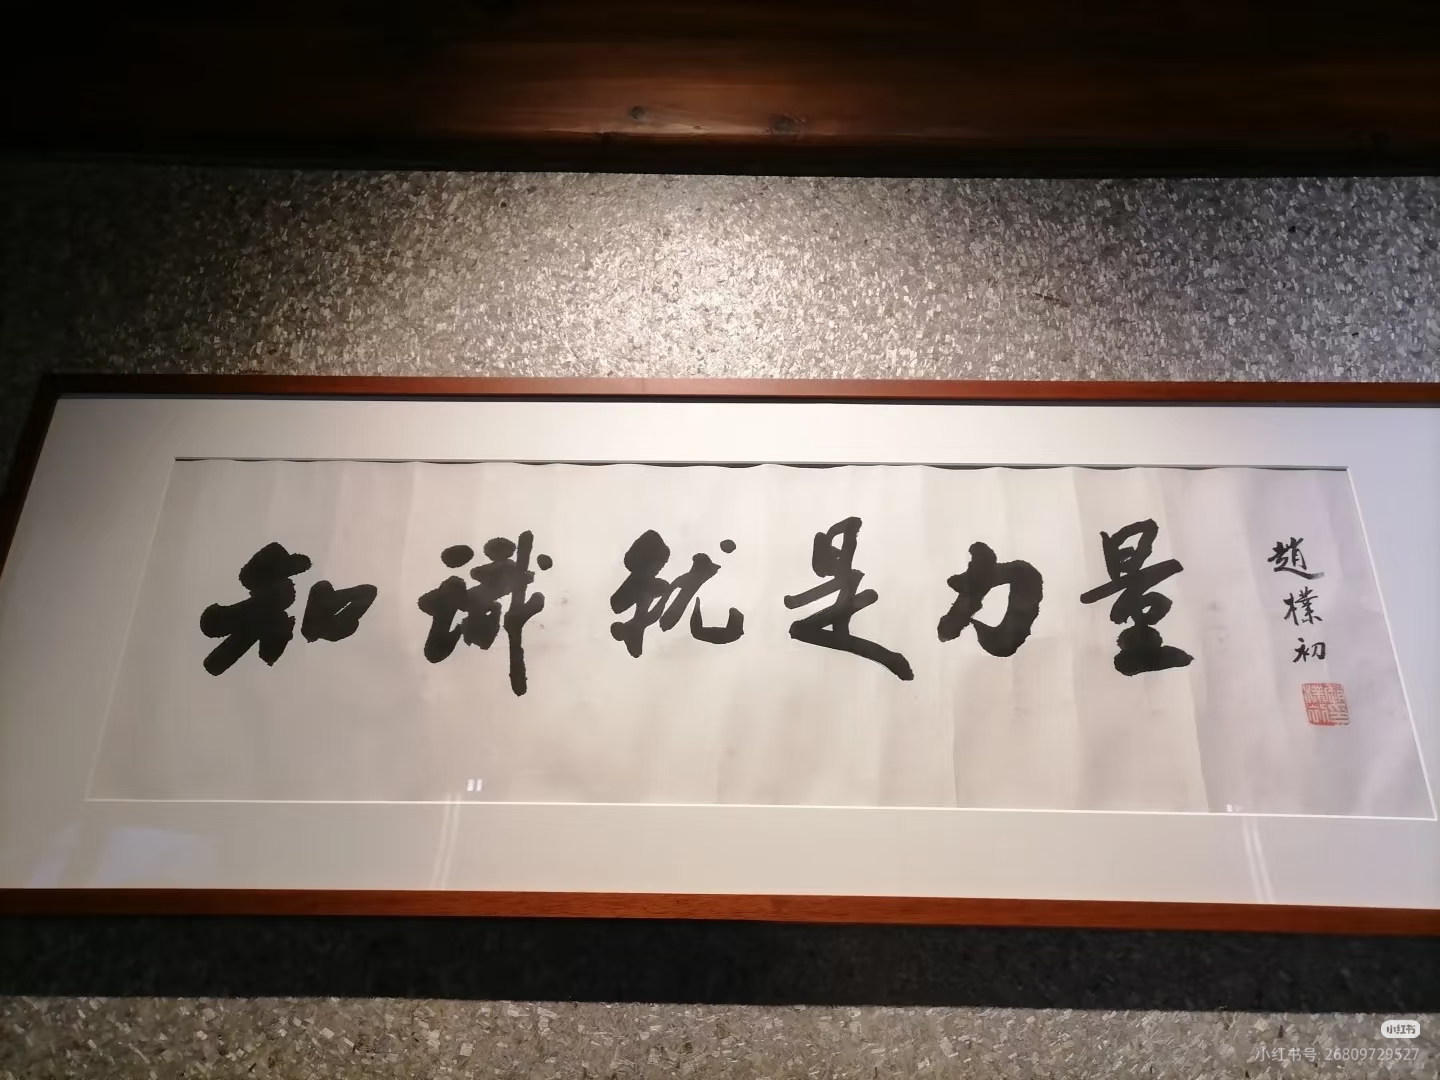 知識就是力量
趙樸初
小红书
小红书号: 26809729527